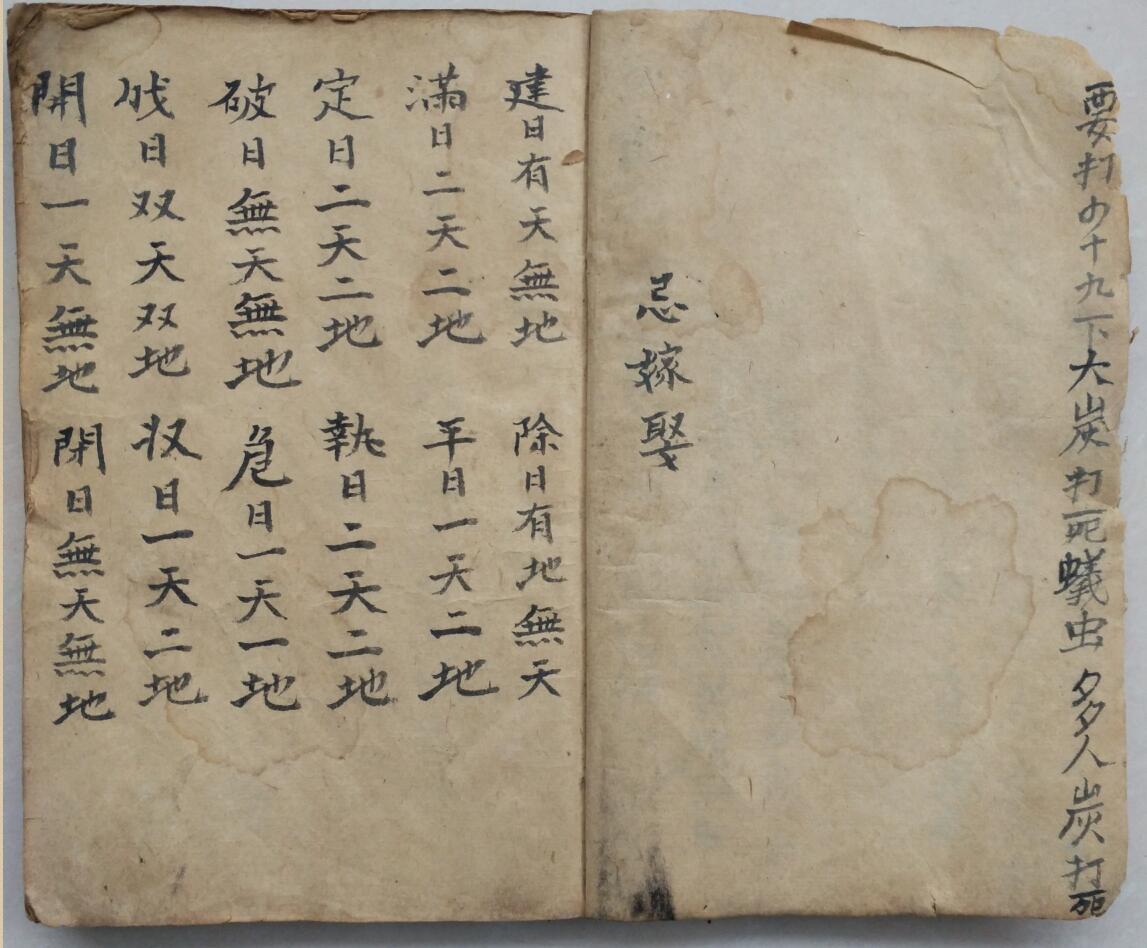 要打四十九下大炭打死蟻虫多人炭打死
忌嫁娶
建日有天無地
除日有地無天
滿日二天二地
平日一天二地
定日二天二地
執日二天二地
破日無天無地
危日一天一地
成日双天双地
収日一天二地
開日一天無地
閉日無天無地